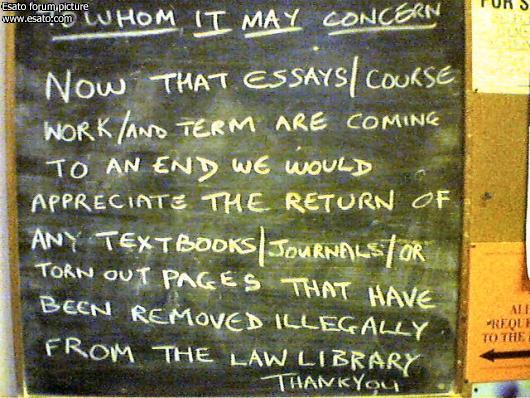 Esato forum picture
www.esato.com
TO WHOM IT MAY CONCERN
NOW THAT ESSAYS/COURSE
WORK/AND TERM ARE COMING
TO AN END WE WOULD
APPRECIATE THE RETURN OF
ANY TEXTBOOKS/JOURNALS/OR
TORN OUT PAGES THAT HAVE
BEEN REMOVED ILLEGALLY
FROM THE LAW LIBRARY
THANKYOU
FOR S
ALL
*REQUE
TO THE